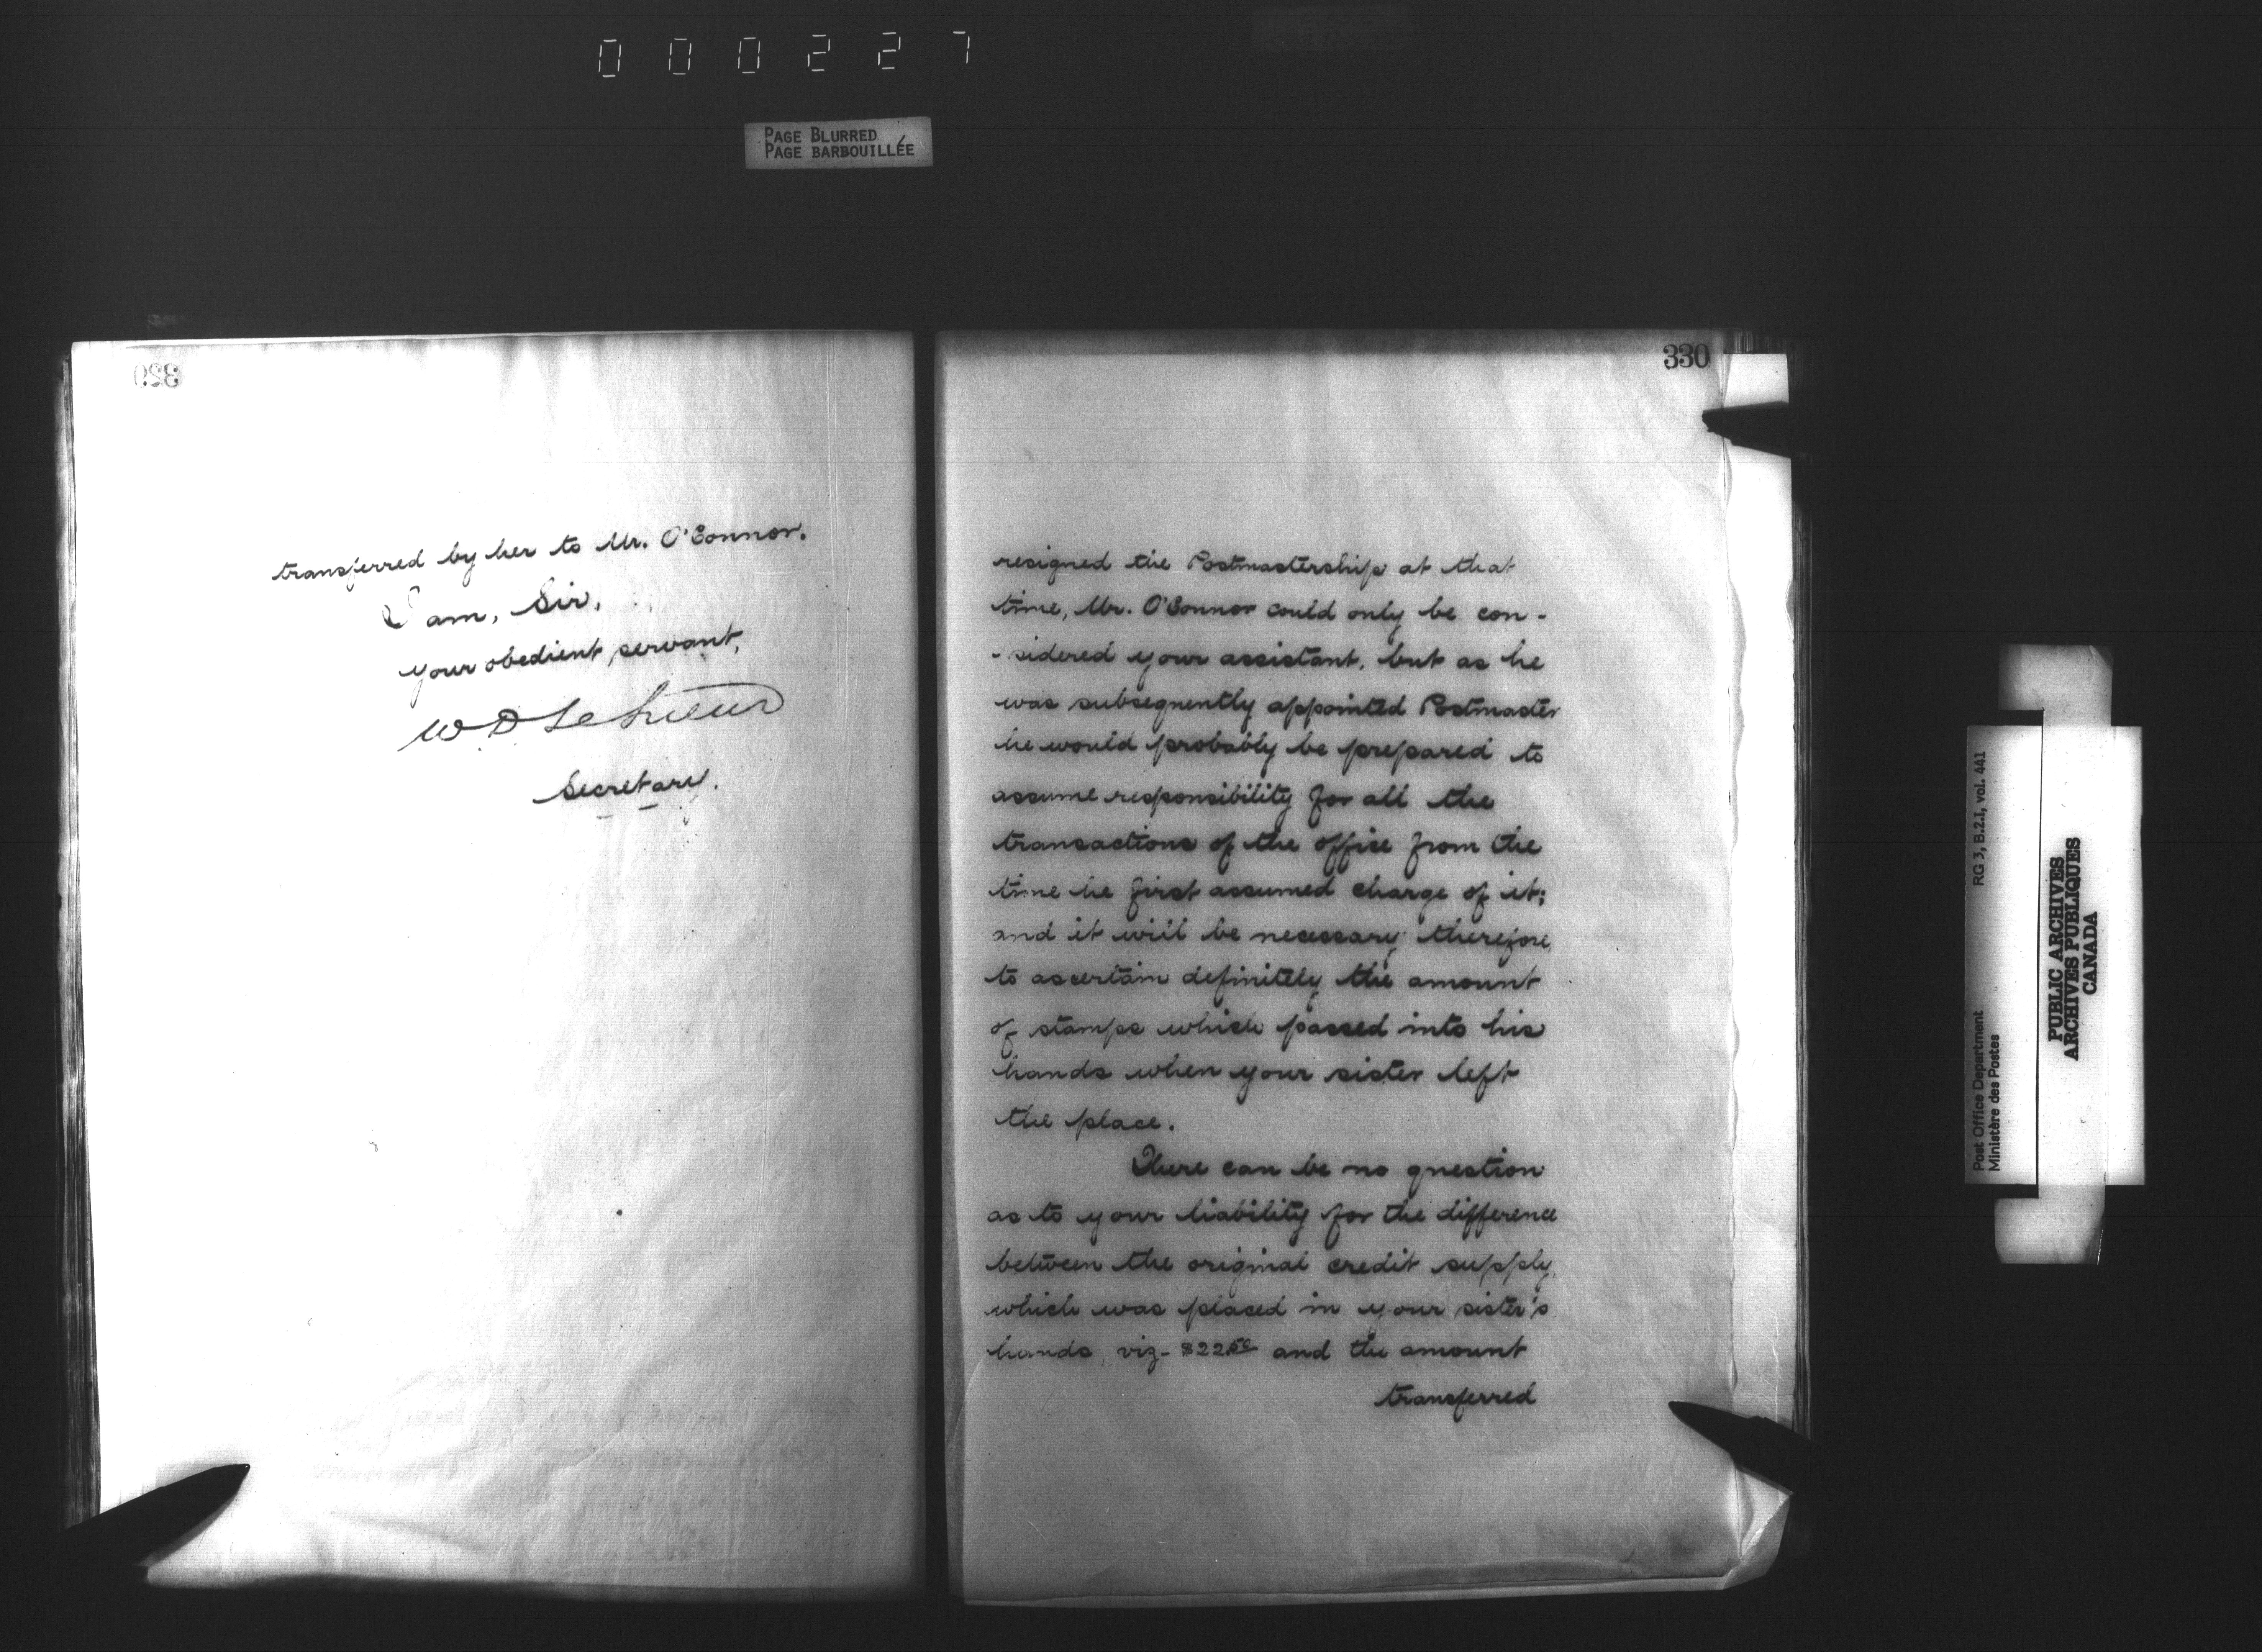 000227
PAGE BLURRED
PAGE BARBOUILLÉE
329
transferred by her to Mr. O'Connor.
I am, Sir,
your obedient servant,
W D LeSueur
Secretary.
330
resigned the Postmastership at that
time, Mr. O'Connor could only be con-
-sidered your assistant, but as he
was subsequently appointed Postmaster
he would probably be prepared to
assume responsibility for all the
transactions of the office from the
time he first assumed charge of it;
and it will be necessary therefore,
to ascertain definitely the amount
of stamps which passed into his
hands when your sister left
the place.
There can be no question
as to your liability for the difference
between the original credit supply,
which was placed in your sister's
hands, viz- $22.50 and the amount
transferred
Post Office Department
Ministère des Postes
RG 3, B.2.I, vol. 441
PUBLIC ARCHIVES
ARCHIVES PUBLIQUES
CANADA